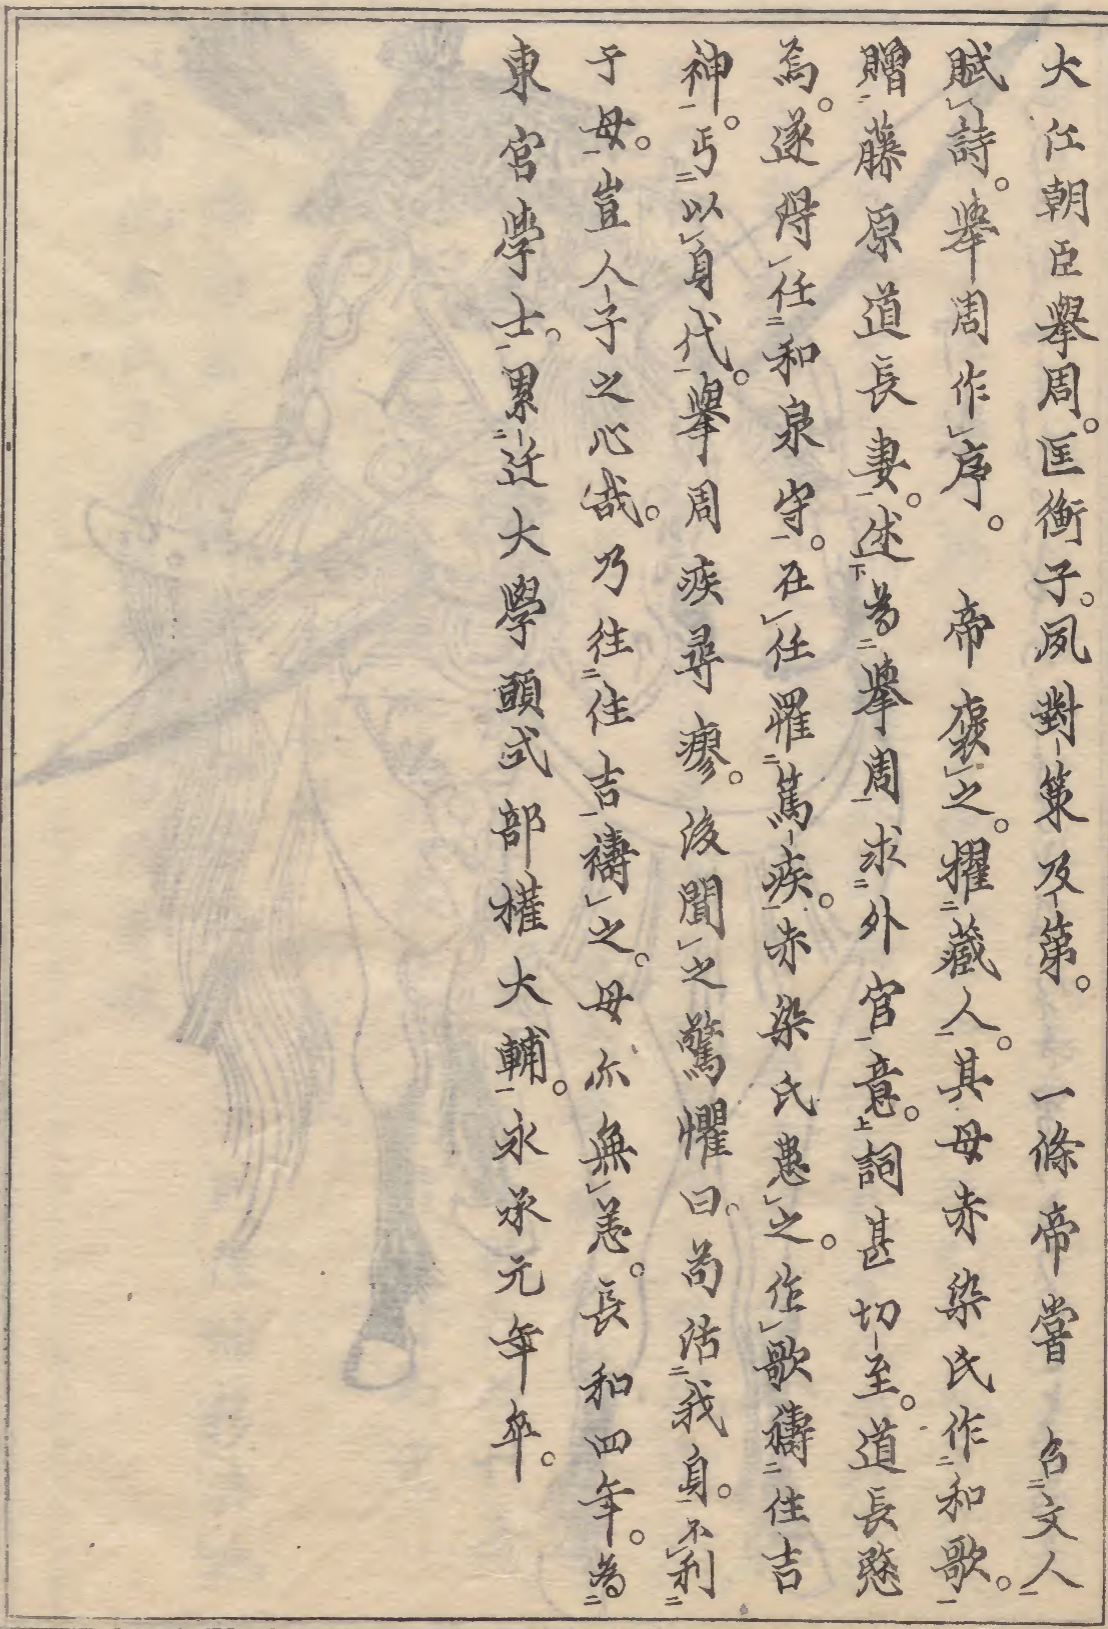 大江朝臣擧周。匡衡子。夙對策及第。一條帝嘗召文人
賦詩。擧周作序。帝襃之。擢藏人。其母赤染氏作和歌。
贈藤原道長妻。述為擧周求外官意。詞甚切至。道長愍
焉。遂得任和泉守。在任罹篤疾。赤染氏患之。作歌禱住吉
神。丐以身代。擧周疾尋瘳。後聞之驚懼曰。苟活我身。不利
于母。豈人子之心哉。乃往住吉禱之。母亦無恙。長和四年。為
東宮學士。累迁大學頭式部權大輔。永承元年卒。